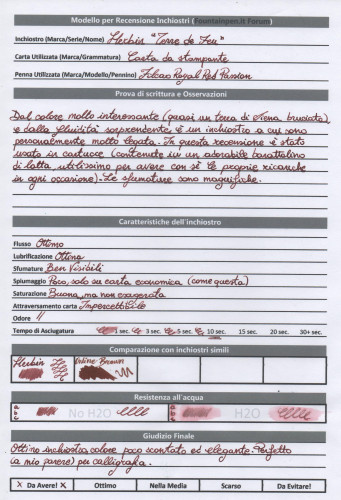 Modello per Recensione Inchiostri (Fountainpen.it Forum)
Inchiostro (Marca/Serie/Nome) Herbin "Terre de Feu"
Carta Utilizzata (Marca/Grammatura) Carta da stampante
Penna Utilizzata (Marca/Modello/Pennino) Filcao Royal Red Passion
Prova di scrittura e Osservazioni
Dal colore molto interessante (quasi un terra di Siena bruciata)
e dalla fluidità sorprendente, è un inchiostro a cui sono
personalmente molto legata. In questa recensione è stato
usato in cartucce (contenute in un adorabile barattolino
di latta, utilissimo per avere con sè le proprie ricariche
in ogni occasione). Le sfumature sono magnifiche.
Caratteristiche dell'inchiostro
Flusso Ottimo
Lubrificazione Ottima
Sfumature Ben Visibili
Spiumaggio Poco, solo su carta economica (come questa)
Saturazione Buona, ma non esagerata
Attraversamento carta Impercettibile
Odore //
Tempo di Asciugatura 1 sec. 3 sec. 5 sec. 10 sec. 15 sec. 20 sec. 30+ sec.
Comparazione con inchiostri simili
Herbin Online Brown
Resistenza all'acqua
No H2O H2O
Giudizio Finale
Ottimo inchiostro, colore poco scontato ed elegante. Perfetto
(a mio parere) per calligrafia.
X Da Avere! X Ottimo Nella Media Scarso Da Evitare!